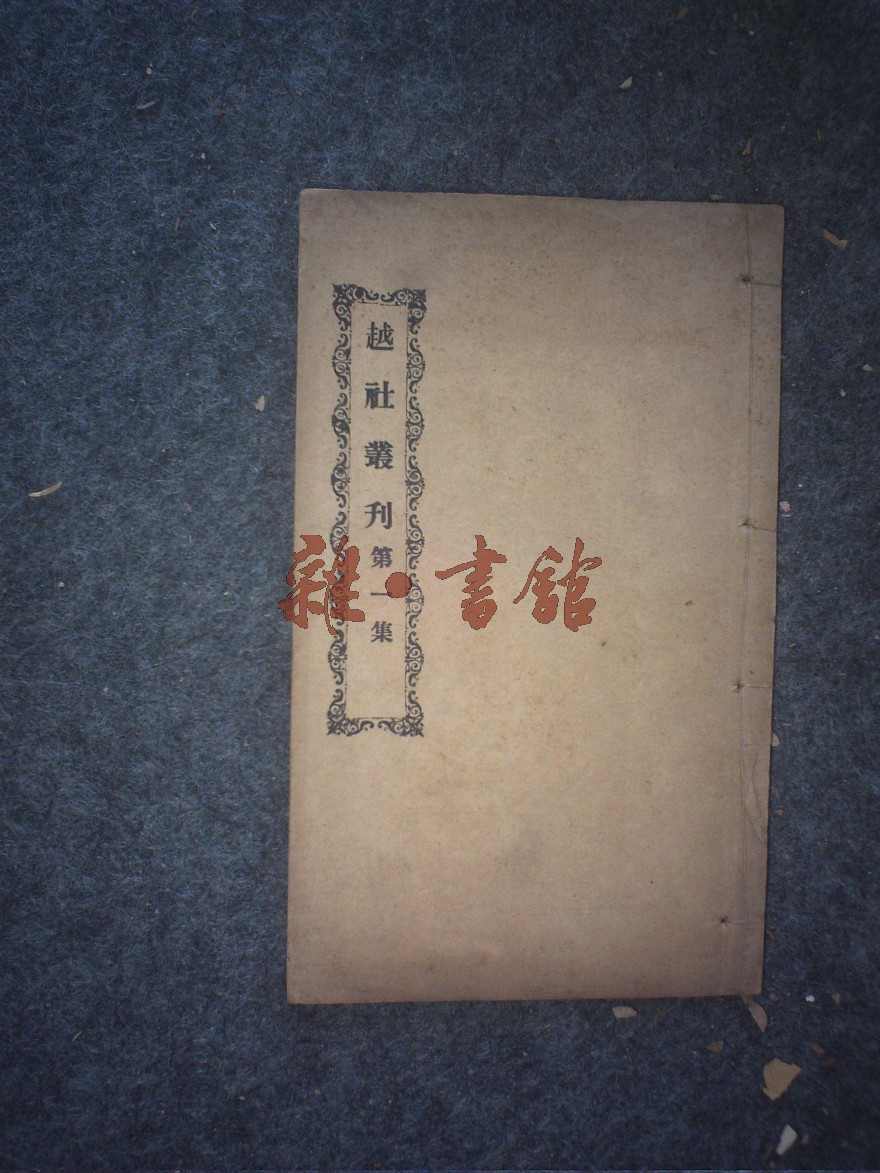 越社叢刊第一集
雜·書館